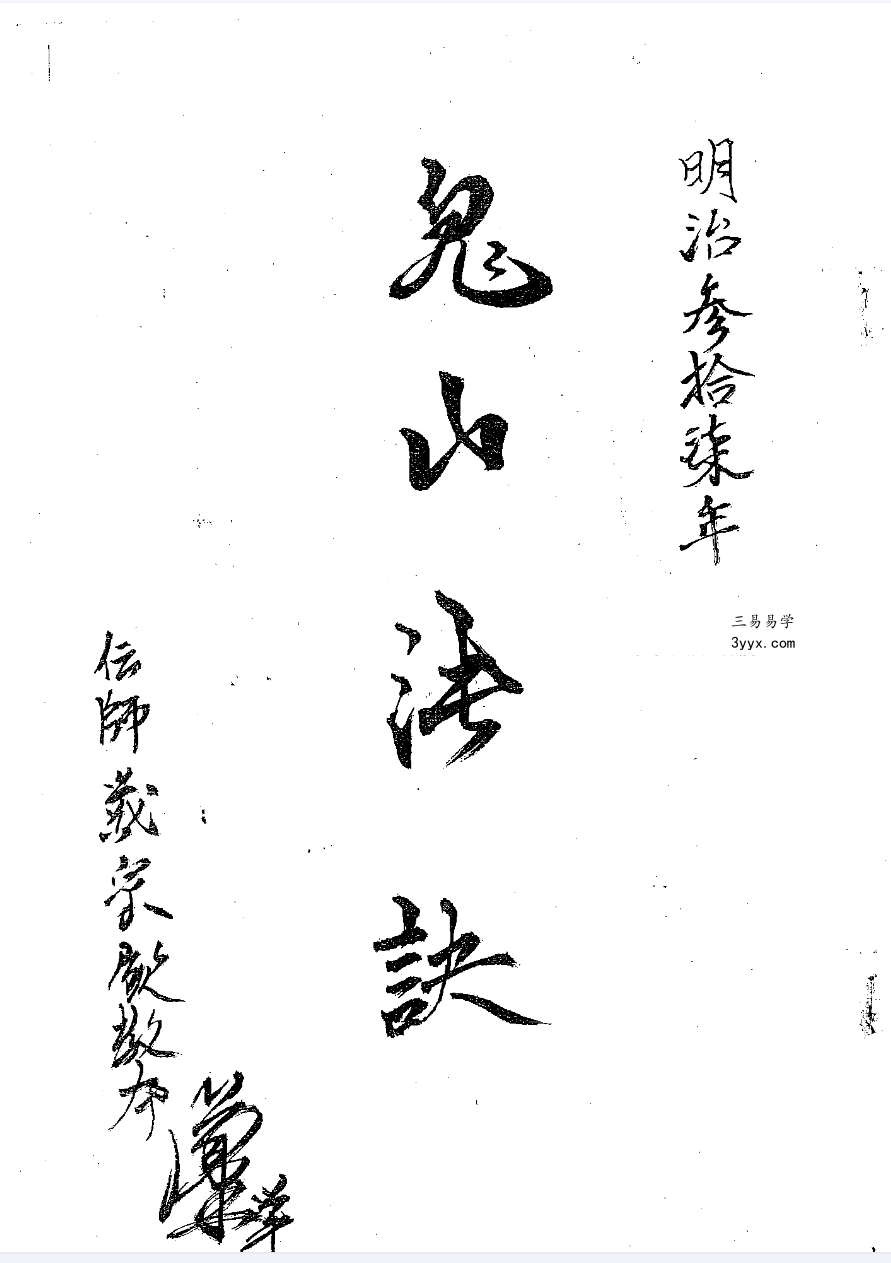 明治参拾柒年
鬼山法訣
三易易学
3yyx.com
伝師戴宗